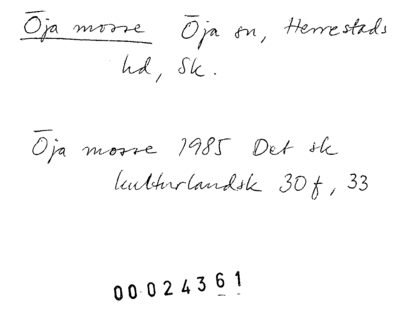 Öja mosse Öja sn, Herrestads
hd, Sk.
Öja mosse 1985 Det sk
kulturlandsk 30 f, 33
00024361